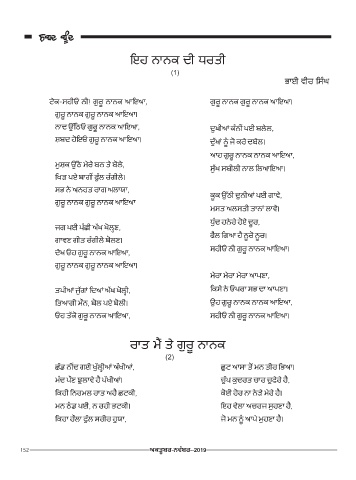 ਸ਼ਬਦ ਬੂੰਦ
ਇਹ ਨਾਨਕ ਦੀ ਧਰਤੀ
(1)
ਭਾਈ ਵੀਰ ਸਿੰਘ
ਟੇਕ-ਸਹੀਓ ਨੀ! ਗੁਰੂ ਨਾਨਕ ਆਇਆ,
ਗੁਰੂ ਨਾਨਕ ਗੁਰੂ ਨਾਨਕ ਆਇਆ।
ਨਾਦ ਉੱਠਿਓ ਗੁਰੂ ਨਾਨਕ ਆਇਆ,
ਸ਼ਬਦ ਹੋਇਓ ਗੁਰੂ ਨਾਨਕ ਆਇਆ।
ਮੁਸ਼ਕ ਉਠੇ ਮੇਰੇ ਬਨ ਤੇ ਬੇਲੇ,
ਖਿੜ ਪਏ ਬਾਗੀਂ ਫੁੱਲ ਰੰਗੀਲੇ।
ਸਭ ਨੇ ਅਨਹਤ ਰਾਗ ਅਲਾਯਾ,
ਗੁਰੂ ਨਾਨਕ ਗੁਰੂ ਨਾਨਕ ਆਇਆ
ਜਗ ਪਈ ਪੰਛੀ ਅੱਖ ਖੋਲ੍ਹਣ,
ਗਾਵਣ ਗੀਤ ਰੰਗੀਲੇ ਬੋਲਣ।
ਦੇਖ ਓਹ ਗੁਰੂ ਨਾਨਕ ਆਇਆ,
ਗੁਰੂ ਨਾਨਕ ਗੁਰੂ ਨਾਨਕ ਆਇਆ।
ਤਪੀਆਂ ਜੁੱਗਾਂ ਦਿਆਂ ਅੱਖ ਖੋਲ੍ਹੀ,
ਤਿਆਗੀ ਮੌਨ, ਬੋਲ ਪਏ ਬੋਲੀ।
ਓਹ ਤੱਕੋ ਗੁਰੂ ਨਾਨਕ ਆਇਆ,
ਗੁਰੂ ਨਾਨਕ ਗੁਰੂ ਨਾਨਕ ਆਇਆ।
ਦੁਖੀਆਂ ਕੰਨੀ ਪਈ ਬਲੇਲ,
ਦੂੰਆਂ ਨੂੰ ਜੋ ਕਰੇ ਦਬੇਲ।
ਆਹ ਗੁਰੂ ਨਾਨਕ ਨਾਨਕ ਆਇਆ,
ਸੁੱਖ ਸਬੀਲੀ ਨਾਲ ਲਿਆਇਆ।
ਕੂਕ ਉੱਠੀ ਦੁਨੀਆਂ ਪਈ ਗਾਵੇ,
ਮਸਤ ਅਲਸਤੀ ਤਾਨਾਂ ਲਾਵੇ।
ਧੁੰਦ ਹਨੇਰੇ ਹੋਏ ਦੂਰ,
ਫੈਲ ਗਿਆ ਹੈ ਨੂਰੋ ਨੂਰ।
ਸਹੀਓ ਨੀ ਗੁਰੂ ਨਾਨਕ ਆਇਆ।
ਮੇਰਾ ਮੇਰਾ ਮੇਰਾ ਆਪਣਾ,
ਕਿਸੇ ਨੇ ਓਪਰਾ ਸਭ ਦਾ ਆਪਣਾ।
ਉਹ ਗੁਰੂ ਨਾਨਕ ਨਾਨਕ ਆਇਆ,
ਸਹੀਓ ਨੀ ਗੁਰੂ ਨਾਨਕ ਆਇਆ।
ਰਾਤ ਮੈਂ ਤੇ ਗੁਰੂ ਨਾਨਕ
(2)
ਛੱਡ ਨੀਂਦ ਗਈ ਖੁੱਲ੍ਹੀਆਂ ਅੱਖੀਆਂ,
ਮੰਦ ਪੌਣ ਝੁਲਾਵੇ ਹੈ ਪੱਖੀਆਂ।
ਕਿਹੀ ਨਿਰਮਲ ਰਾਤ ਅਹੋ ਛਟਕੀ,
ਮਨ ਠੰਡ ਪਈ, ਨ ਰਹੀ ਭਟਕੀ।
ਕਿਹਾ ਹੌਲਾ ਫੁੱਲ ਸਰੀਰ ਹੁਯਾ,
ਛੁਟ ਆਸਾ ਤੋਂ ਮਨ ਤੀਰ ਭਿਆ।
ਚੁੱਪ ਕੁਦਰਤ ਚਾਰ ਚੁਫੇਰੇ ਹੈ,
ਕੋਈ ਹੋਰ ਨਾ ਨੇੜੇ ਮੇਰੇ ਹੈ।
ਇਹ ਵੇਲਾ ਅਚਰਜ ਸੁਹਣਾ ਹੈ,
ਜੋ ਮਨ ਨੂੰ ਆਪੇ ਮੁਹਣਾ ਹੈ।
152
ਅਕਤੂਬਰ-ਨਵੰਬਰ-2019